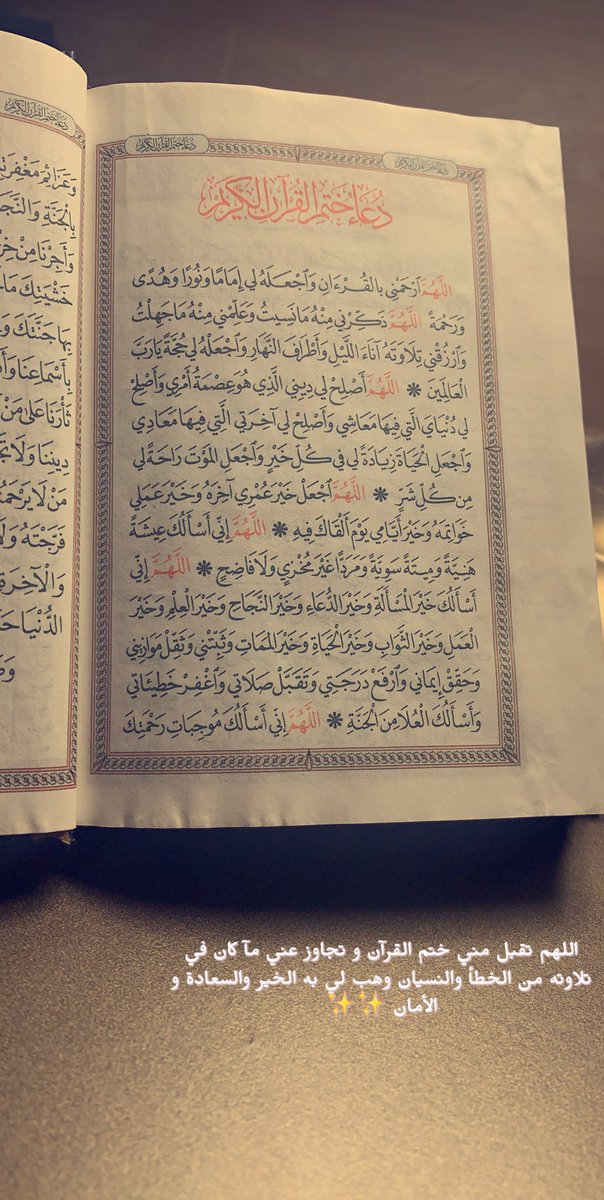 دُعَاءُ خَتْمِ القُرْآنِ الكَرِيْمِ
دُعَاءُ خَتْمِ القُرْآنِ الكَرِيْمِ
دُعَاءُ خَتْمِ القُرْآنِ الكَرِيْمِ
اللَّهُمَّ ٱرْحَمْنِي بِالقُرْءَانِ وَٱجْعَلْهُ لِي إِمَامًا وَنُورًا وَهُدًى
وَرَحْمَةً اللَّهُمَّ ذَكِّرْنِي مِنْهُ مَا نَسِيتُ وَعَلِّمْنِي مِنْهُ مَا جَهِلْتُ
وَٱرْزُقْنِي تِلَاوَتَهُ آنَاءَ اللَّيْلِ وَأَطْرَافَ النَّهَارِ وَٱجْعَلْهُ لِي حُجَّةً يَارَبَّ
العَالَمِينَ * اللَّهُمَّ أَصْلِحْ لِي دِينِي الَّذِي هُوَ عِصْمَةُ أَمْرِي وَأَصْلِحْ
لِي دُنْيَايَ الَّتِي فِيهَا مَعَاشِي وَأَصْلِحْ لِي آخِرَتِي الَّتِي فِيهَا مَعَادِي
وَٱجْعَلِ الحَيَاةَ زِيَادَةً لِي فِي كُلِّ خَيْرٍ وَٱجْعَلِ المَوْتَ رَاحَةً لِي
مِن كُلِّ شَرٍّ * اللَّهُمَّ ٱجْعَلْ خَيْرَ عُمْرِي آخِرَهُ وَخَيْرَ عَمَلِي
خَوَاتِمَهُ وَخَيْرَ أَيَّامِي يَوْمَ أَلْقَاكَ فِيهِ * اللَّهُمَّ إِنِّي أَسْأَلُكَ عِيشَةً
هَنِيَّةً وَمِيتَةً سَوِيَّةً وَمَرَدًّا غَيْرَ مُخْزِي وَلَا فَاضِحٍ * اللَّهُمَّ إِنِّي
أَسْأَلُكَ خَيْرَ المَسْأَلَةِ وَخَيْرَ الدُّعَاءِ وَخَيْرَ النَّجَاحِ وَخَيْرَ العِلْمِ وَخَيْرَ
العَمَلِ وَخَيْرَ الثَّوَابِ وَخَيْرَ الحَيَاةِ وَخَيْرَ المَمَاتِ وَثَبِّتْنِي وَثَقِّلْ مَوَازِينِي
وَحَقِّقْ إِيمَانِي وَٱرْفَعْ دَرَجَتِي وَتَقَبَّلْ صَلَاتِي وَٱغْفِرْ خَطِيئَاتِي
وَأَسْأَلُكَ العُلَا مِنَ الجَنَّةِ * اللَّهُمَّ إِنِّي أَسْأَلُكَ مُوجِبَاتِ رَحْمَتِكَ
دُعَاءُ خَتْمِ القُرْآنِ الكَرِيْمِ
وَعَزَائِمَ مَغْفِرَتِكَ
بِالْجَنَّةِ
وَأَجِرْنَا مِنْ
خَشْيَتِكَ
بِهَا جَنَّتَكَ
بِأَسْمَاعِنَا
ثَأْرَنَا عَلَى مَنْ
دِينِنَا وَلَا
مَنْ لَا يَرْحَمُنَا
فَرَّجْتَهُ
وَالْآخِرَةِ
الدُّنْيَا
اللهم تقبل مني ختم القرآن و تجاوز عني مآ كان في
تلاوته من الخطأ والنسيان وهب لي به الخير والسعادة و
الأمان ✨✨